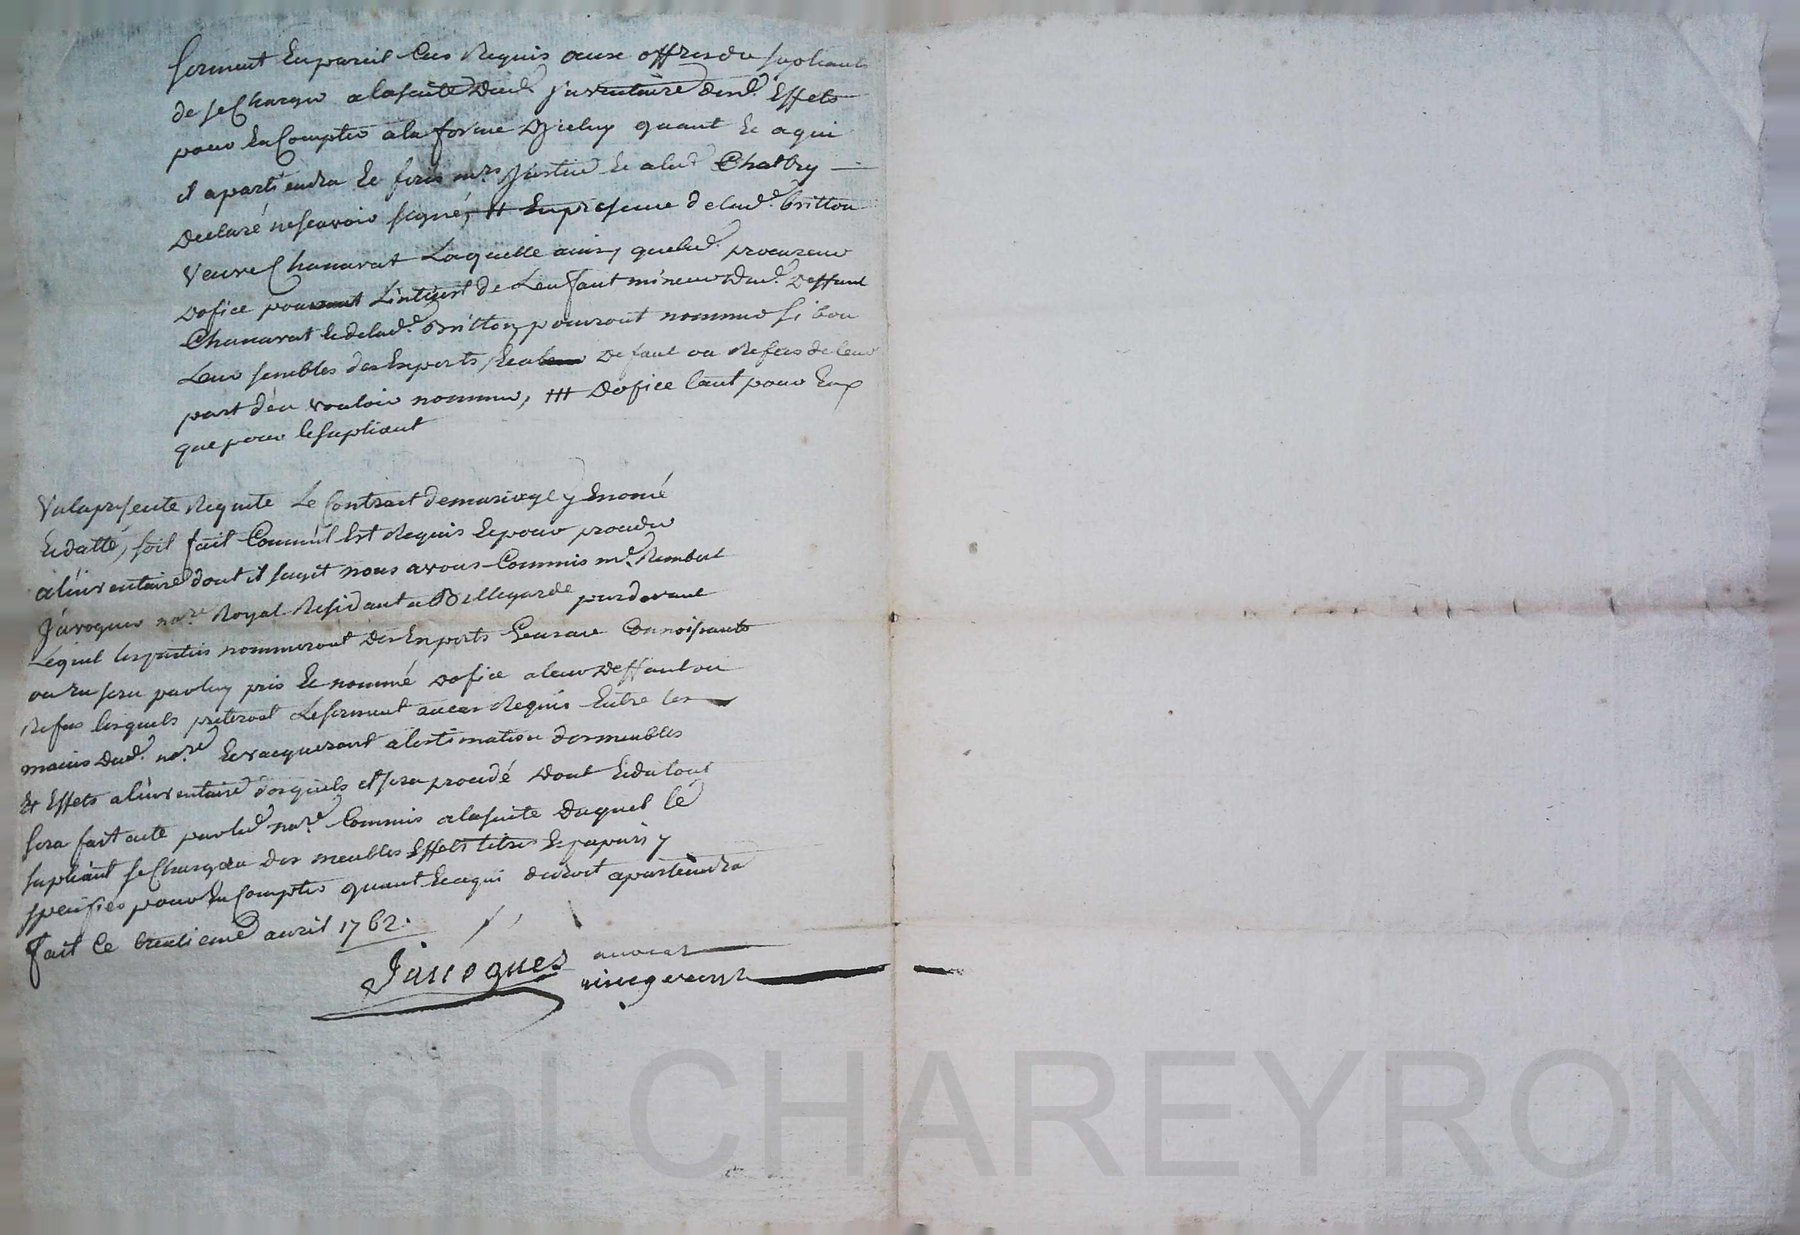 serment en pareil Cas Requis aux offres du supliant
de se Charger a la suitte Dud. jnventaire desd. Effets
pour en Compter a la forme Dicelluy quant Et a qui
il apartiendra Et feres Justice Et a lad. Chatbry
Declaré ne scavoir signé, # En presence de lad. britton
veuve Chanavat Laquelle ainsy que led. procureur
Dofice pour Linterest de Lenfant mineur Dud. Deffunt
Chanavat Et delad. britton pourront nommer si bon
Leur semblet des Experts, Et a Defaut ou Refus de leur
part d'en vouloir nommer, ### Dofice tant pour Eux
que pour le supliant
Vu la presente Requete Le Contract de mariage y Enoncé
Et datté, soit fait Comme il Est Requis Et pour proceder
a l'inventaire dont il sagit nous avons Commis me. Rambert
Javogues nore. Royal Residant a Bellegarde pardevant
Lequel les parties nommeront Des Experts Gens a ce Connoissants
ou En sera par luy pris Et nommé Dofice a leur Deffaut ou
Refus lesquels preteront Le serment au cas Requis Entre les
mains Dud. nore. Et vacqueront a l'estimation des meubles
Et Effets a l'inventaire desquels il sera procedé Dont Et du tout
sera fait acte par led. nore. Commis a la suite Duquel le
supliant se Chargera Des meubles Effets titres Et papiers y
speciffiés pour En Compter quant Et a qui de droit apartiendra
fait Ce trentieme avril 1762.
Javogues avocat
Pascal CHAREYRON